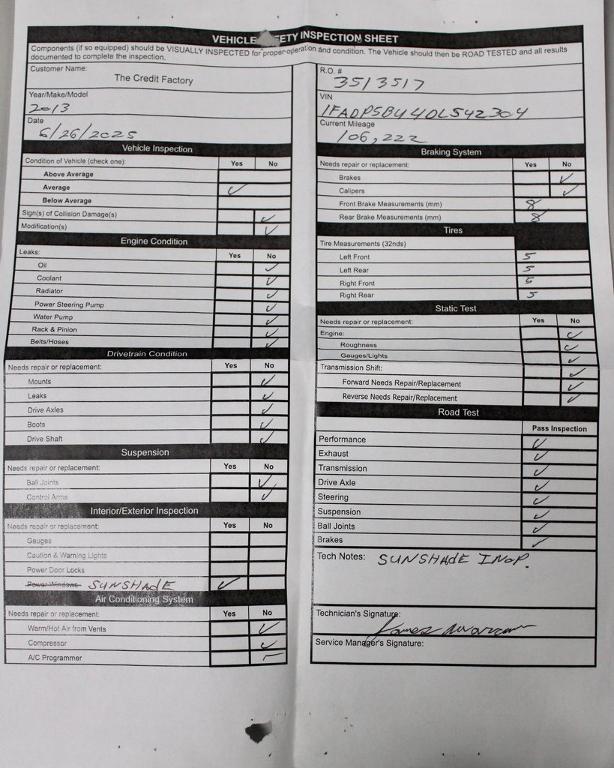 VEHICLE SAFETY INSPECTION SHEET
Components (if so equipped) should be VISUALLY INSPECTED for proper operation and condition. The Vehicle should then be ROAD TESTED and all results
documented to complete the inspection.
Customer Name:
The Credit Factory
Year/Make/Model
2013
Date
6/26/2025
Vehicle Inspection
Condition of Vehicle (check one): Yes No
Above Average
Average ✓
Below Average
Sign(s) of Collision Damage(s) ✓
Modification(s) ✓
Engine Condition
Leaks: Yes No
Oil ✓
Coolant ✓
Radiator ✓
Power Steering Pump ✓
Water Pump ✓
Rack & Pinion ✓
Belts/Hoses ✓
Drivetrain Condition
Needs repair or replacement: Yes No
Mounts ✓
Leaks ✓
Drive Axles ✓
Boots ✓
Drive Shaft ✓
Suspension
Needs repair or replacement: Yes No
Ball Joints ✓
Control Arms ✓
Interior/Exterior Inspection
Needs repair or replacement: Yes No
Gauges
Caution & Warning Lights
Power Door Locks
Power Windows SUNSHADE ✓
Air Conditioning System
Needs repair or replacement: Yes No
Warm/Hot Air from Vents ✓
Compressor ✓
A/C Programmer
R.O. #
3513517
VIN
1FADP5BU4DL542304
Current Mileage
106,222
Braking System
Needs repair or replacement: Yes No
Brakes ✓
Calipers ✓
Front Brake Measurements (mm) 8
Rear Brake Measurements (mm) 8
Tires
Tire Measurements (32nds)
Left Front 5
Left Rear 5
Right Front 5
Right Rear 5
Static Test
Needs repair or replacement: Yes No
Engine: ✓
Roughness ✓
Gauges/Lights ✓
Transmission Shift:
Forward Needs Repair/Replacement ✓
Reverse Needs Repair/Replacement ✓
Road Test
Pass Inspection
Performance ✓
Exhaust ✓
Transmission ✓
Drive Axle ✓
Steering ✓
Suspension ✓
Ball Joints ✓
Brakes ✓
Tech Notes: SUNSHADE INOP.
Technician's Signature:
Service Manager's Signature: